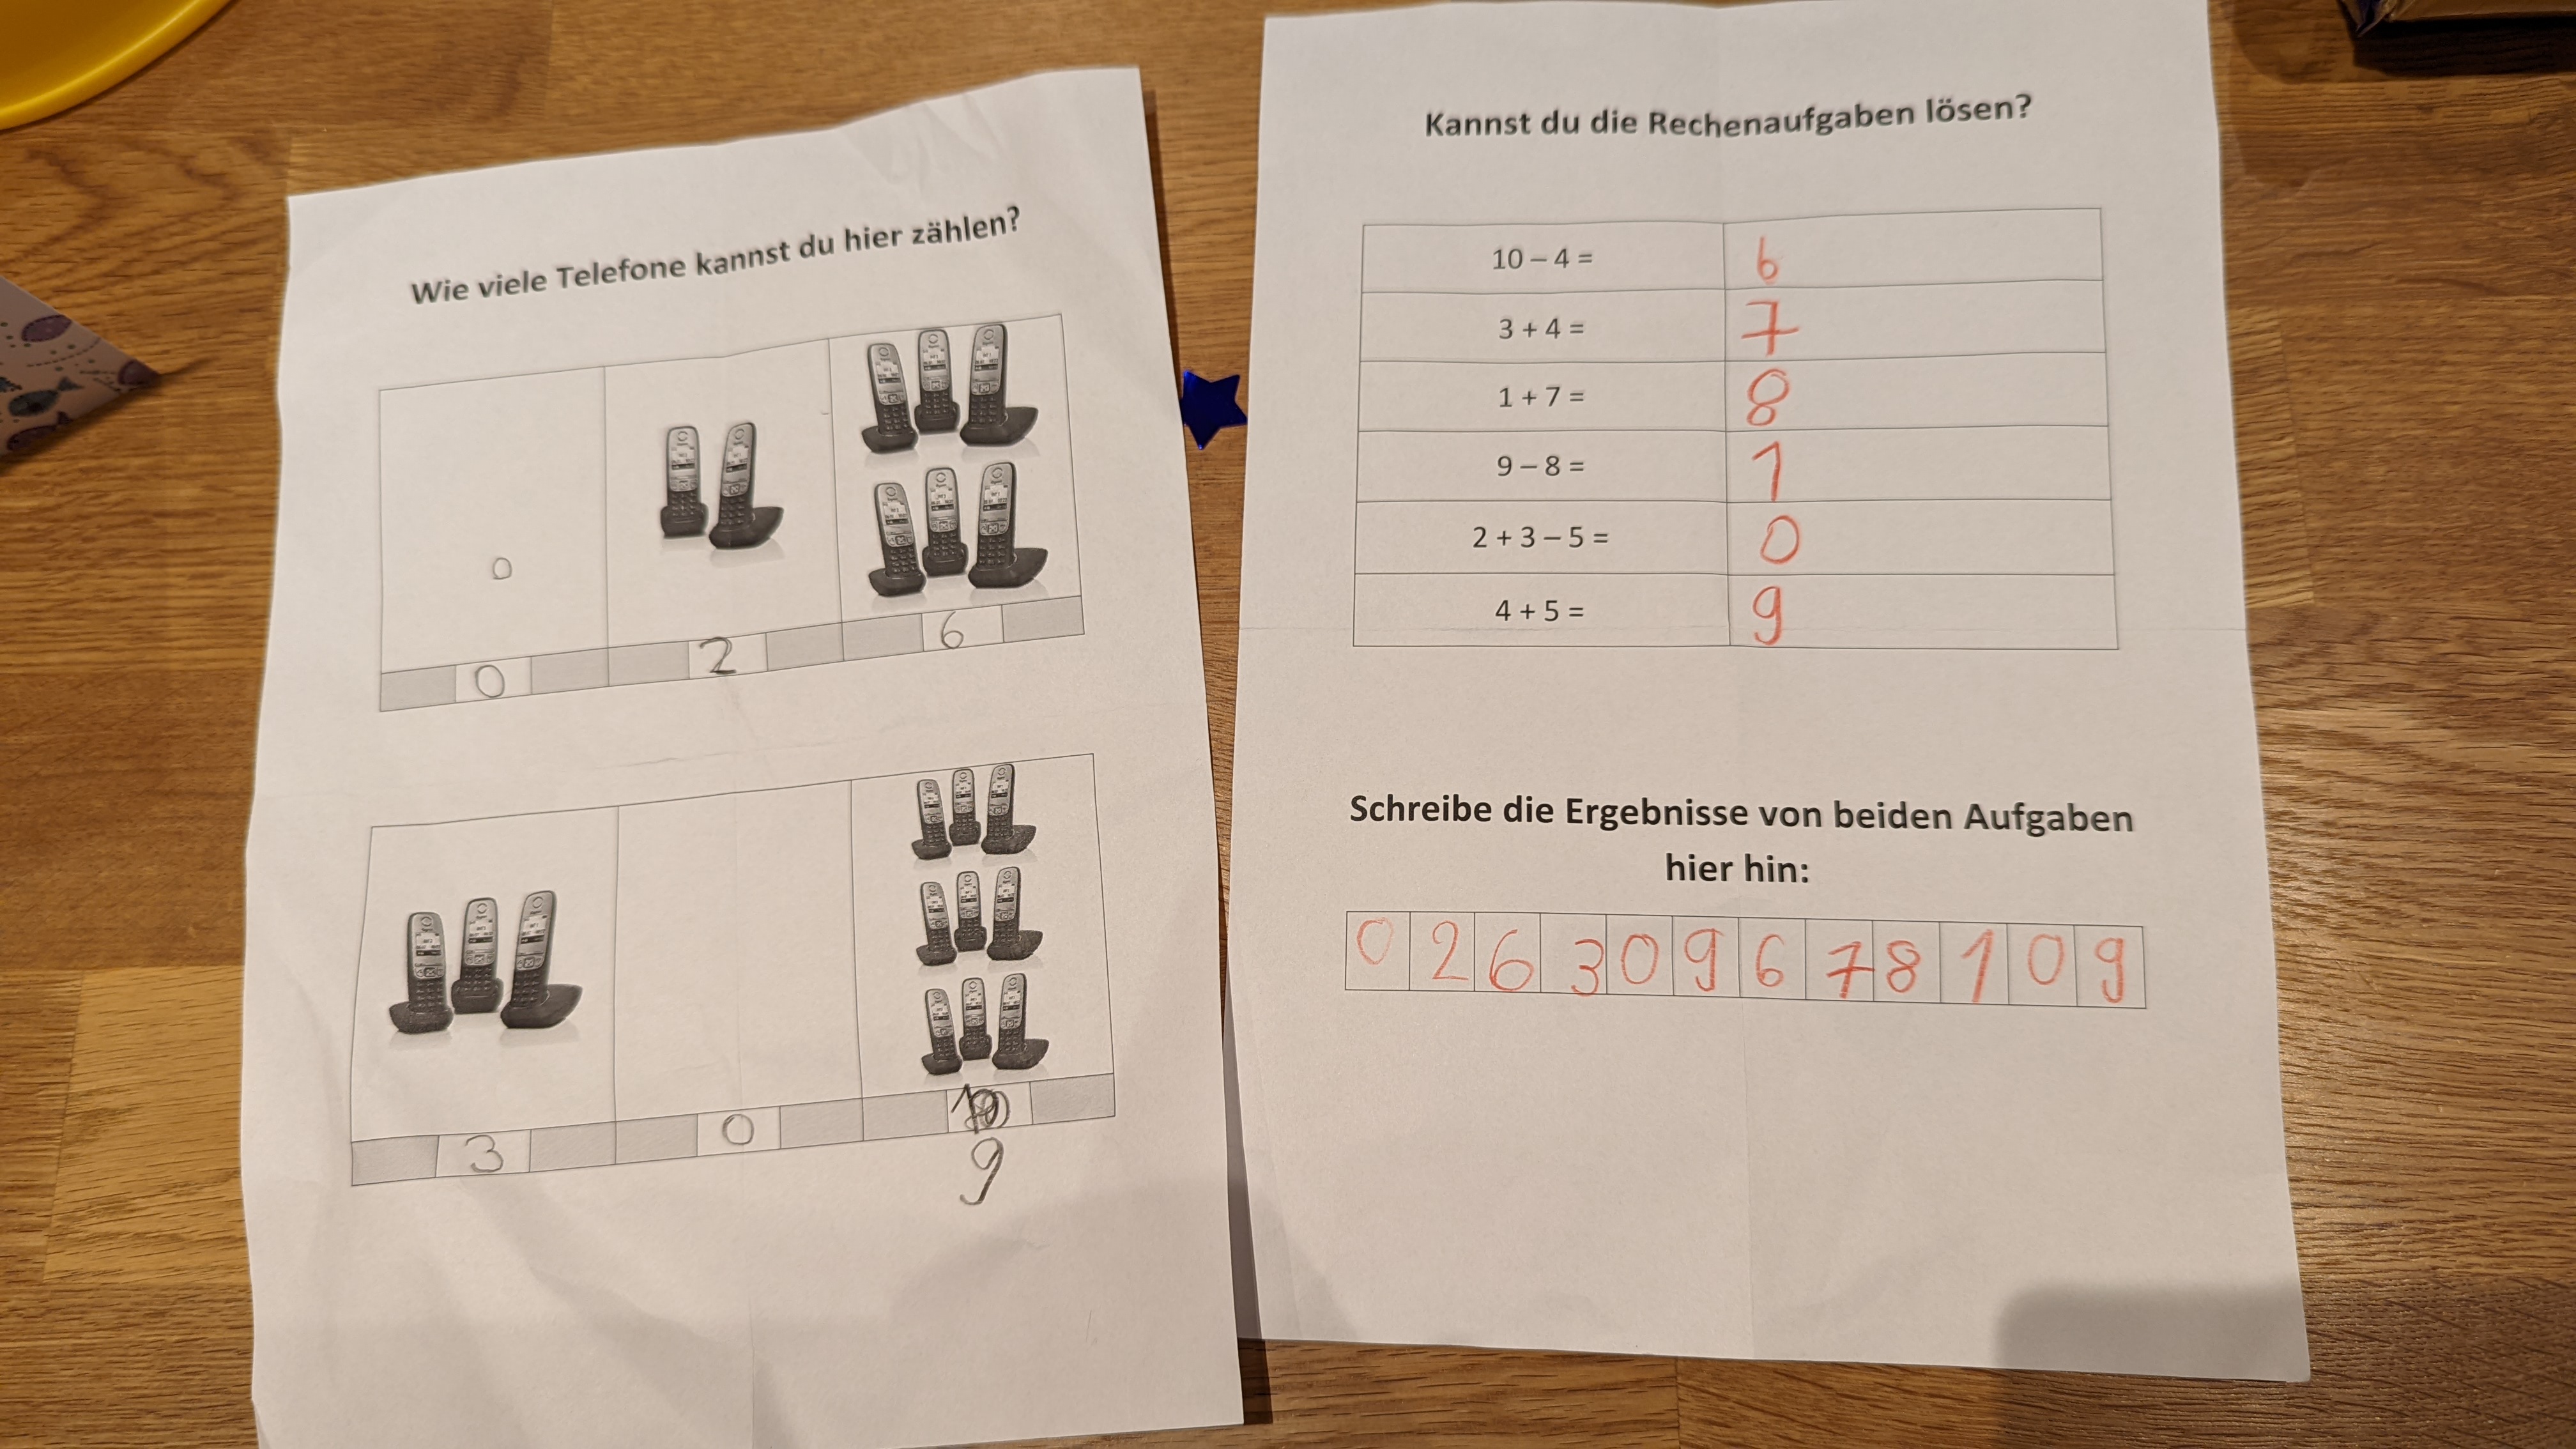 Wie viele Telefone kannst du hier zählen?
0
0 2 6
3 0
9
Kannst du die Rechenaufgaben lösen?
10 – 4 = 6
3 + 4 = 7
1 + 7 = 8
9 – 8 = 1
2 + 3 – 5 = 0
4 + 5 = 9
Schreibe die Ergebnisse von beiden Aufgaben
hier hin:
0 2 6 3 0 9 6 7 8 1 0 9